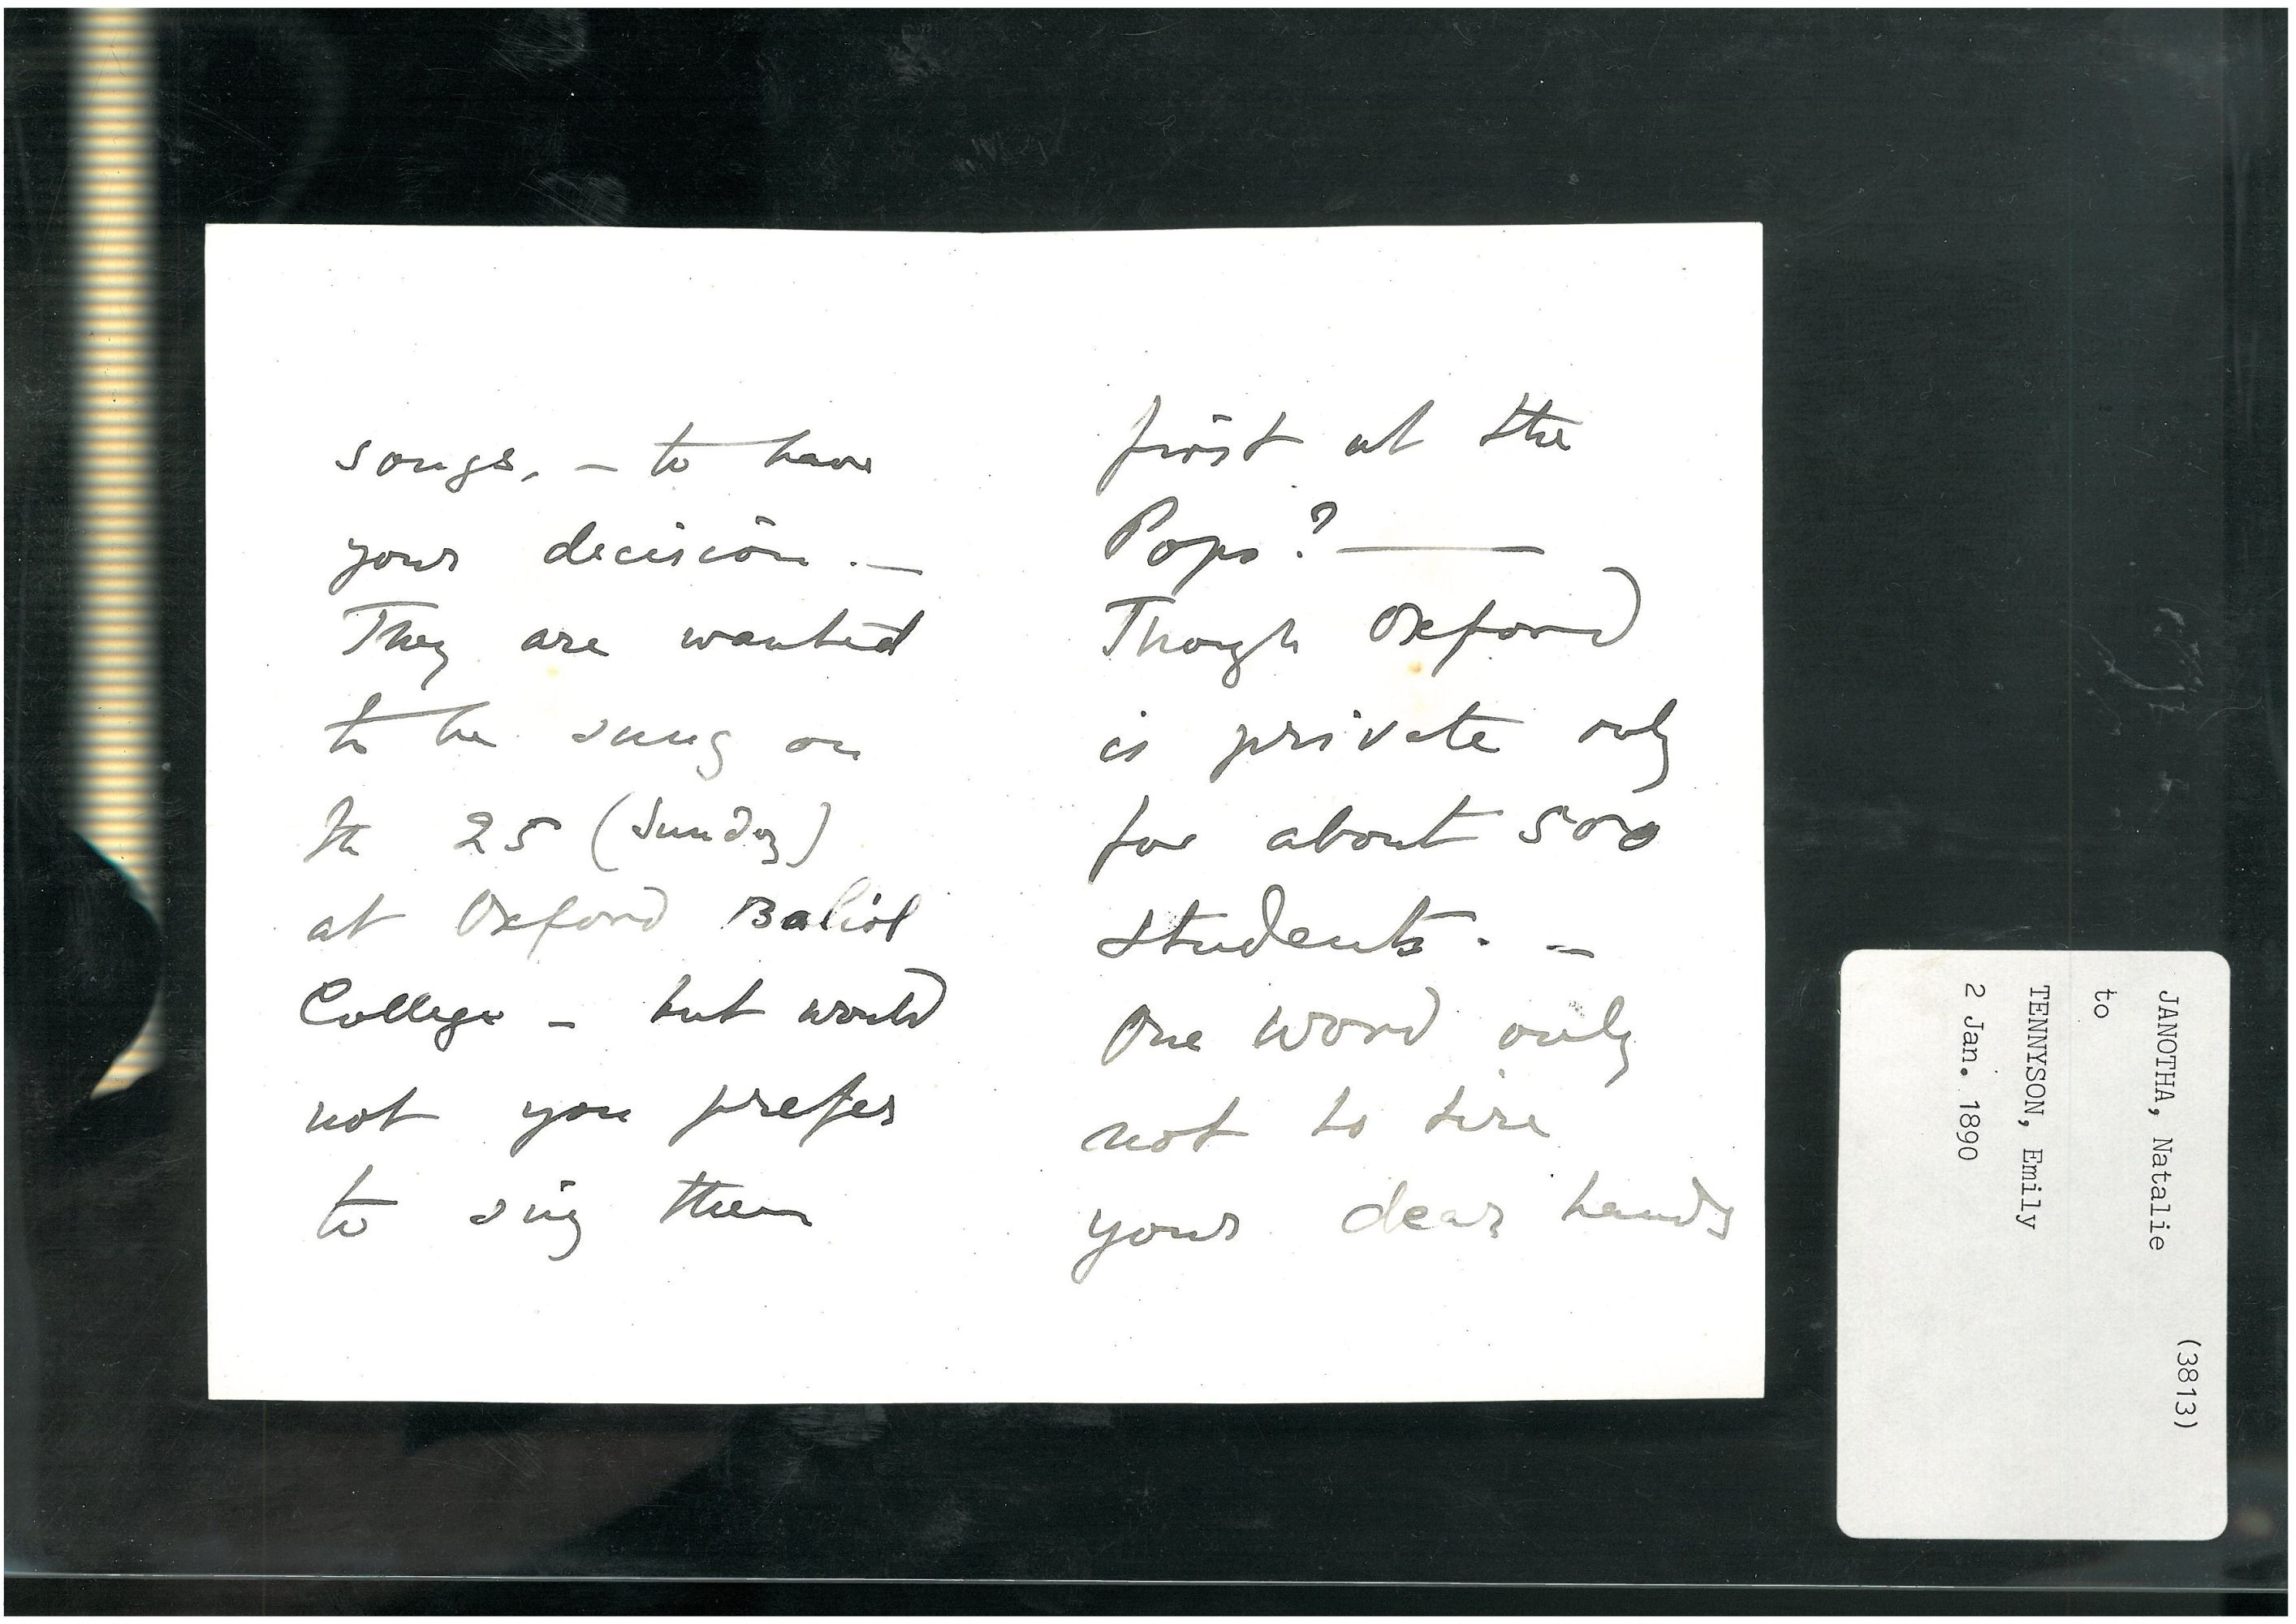 songs, – to have
your decision. –
They are wanted
to be sung on
the 25 (Sunday)
at Oxford Baliol
College – but would
not you prefer
to sing them
first at the
Pops? —
Though Oxford
is private only
for about 500
students. –
One word only
not to tire
your dear hands
(3813)
JANOTHA, Natalie
to
TENNYSON, Emily
2 Jan. 1890